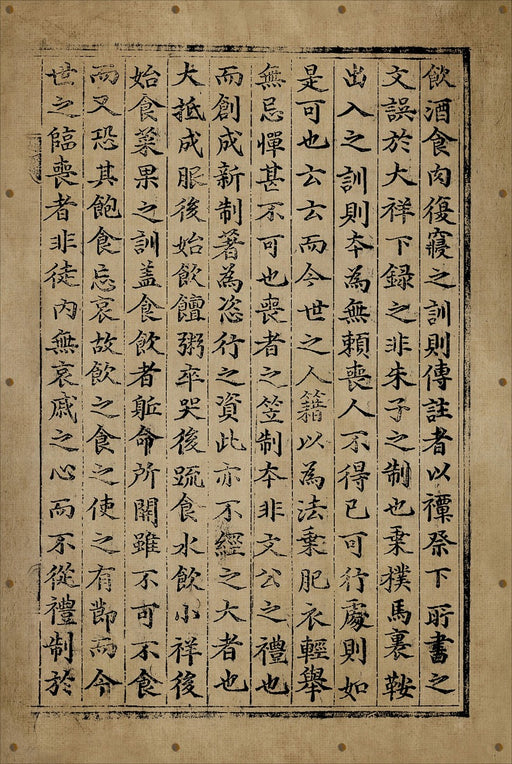 飮酒食肉復寢之訓則傳註者以禫祭下所書之
文誤於大祥下錄之非朱子之制也乗樸馬裏鞍
出入之訓則夲為無頼喪人不得已可行處則如
是可也云云而今世之人籍以為法乗肥衣輕舉
無忌憚甚不可也喪者之笠制夲非文公之禮也
而創成新制著為恣行之資此亦不經之大者也
大抵成服後始飮饘粥卒哭後䟽食水飮小祥後
始食菜果之訓盖食飮者軀命所關雖不可不食
而又恐其飽食忘哀故飮之食之使之有節而今
世之臨喪者非徒內無哀戚之心而不從禮制於